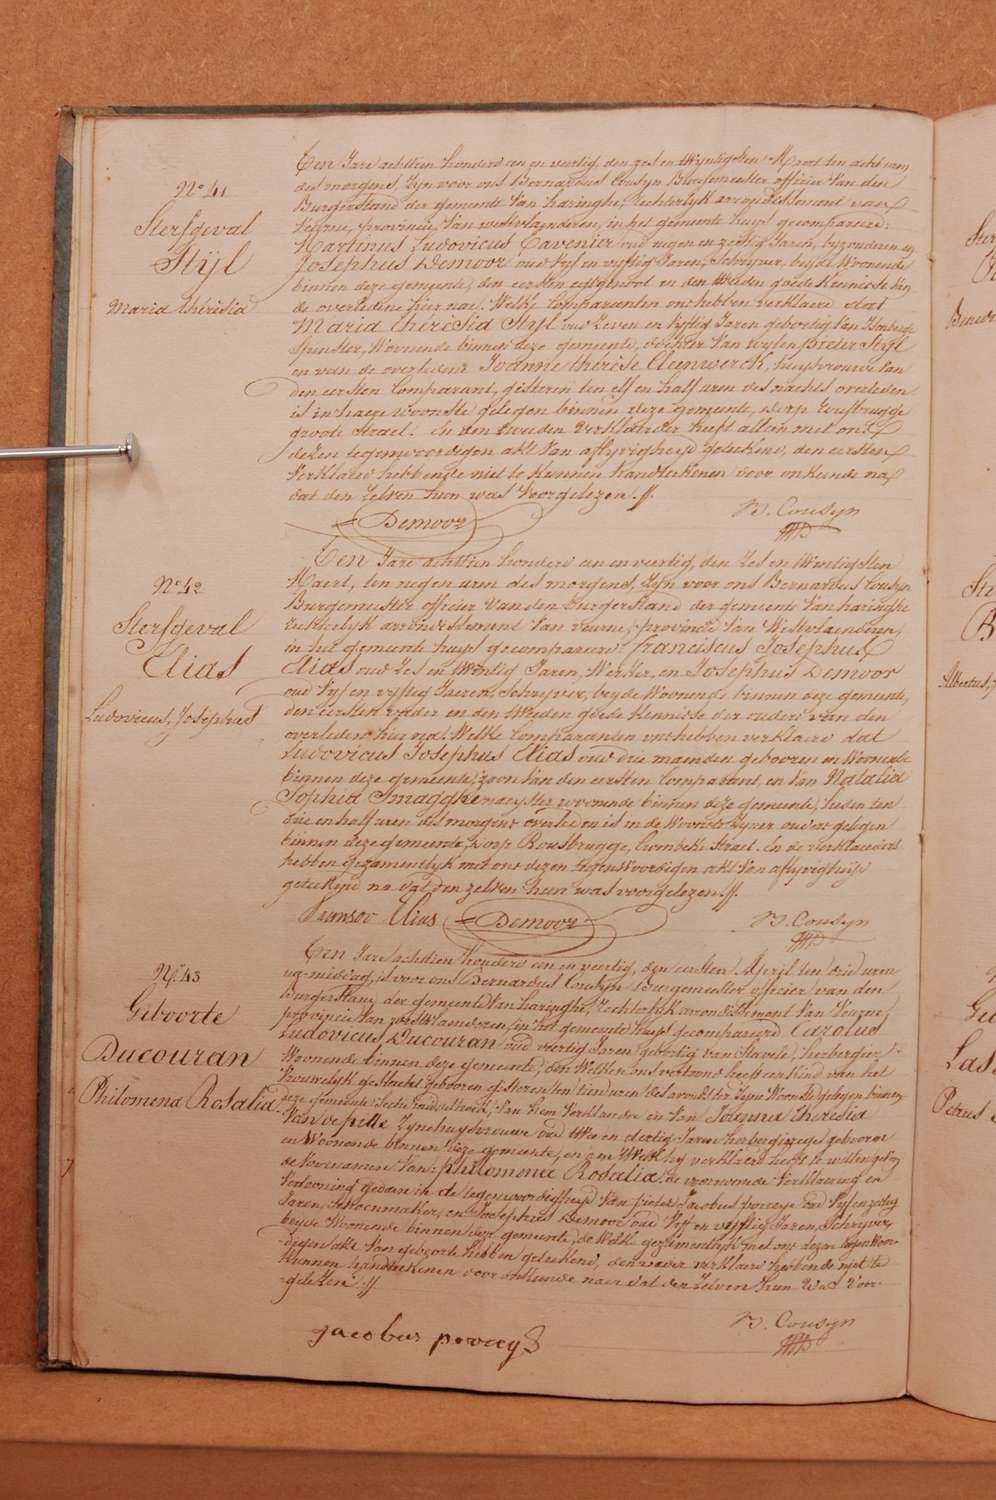 N.º 41
Sterfgeval
Stÿl
Maria thérésia
Een Jare achttien honderd een en veertig, den zes en twyntigsten Maert ten acht uren
des morgens, zyn voor ons Bernardus Cousyn Burgemeester officier van den
Burgerstand der gemeente Van haringhe, rechterlyk arrondissement van
veurne, provincie Van westvlaenderen, in het gemeente huys gecompareerd:
Martinus Ludovicus Cavenier oud negen en zestig Jaren, byzonderen en
Josephus Demoor oud vyf en vyftig Jaren, Schryver, beyde Woonende
binnen deze gemeente, den eersten echtgenoot en den tweeden goede kennisse van
de overledene hier naer. Welke Comparanten ons hebben verklaerd dat
Maria thérésia Stÿl oud Zeven en vyftig Jaren geboortig Van Isenberge
Spinster, Woonende binnen deze gemeente, dochter Van wylen pieter Stÿl
en van de overledene Joanne thérèse Cleenwerck, huysvrouwe van
den eersten Comparant, gisteren ten elf en half uren des nachts overleden
is in haere woonste gelegen binnen deze gemeente, dorp rousbrugge
groote Straet. En den tweeden Verklaerder heeft alleen met ons
dezen tegenwoordigen akt Van aflyvigheyd geteekend, den eersten
verklaerd hebbende niet te kunnen handteekenen door onkunde na
dat den zelven hun was Voorgelezen.//.
Demoor
B. Cousyn
N.º 42
Sterfgeval
Elias
Ludovicus, Josephus
Een Jare achttien honderd een en veertig, den Zes en twintigsten
Maert, ten negen uren des morgens, zyn voor ons Bernardus Cousyn
Burgemeester officier Van den burgerstand der gemeente Van haringhe
rechterlyk arrondissement Van veurne, provincie Van Westvlaenderen,
in het gemeente huys gecompareerd: franciscus Josephus
Elias oud Zes en twintig Jaren, Werker, en Josephus Demoor
oud Vyf en vyftig Jaeren, Schryver, beyde Woonende binnen deze gemeente,
den eersten vader en den tweeden goede kennisse der ouders van den
overledene hier na. Welke Comparanten ons hebben verklaerd dat
Ludovicus Josephus Elias oud drie maenden gebooren en Woonende
binnen deze gemeente, zoon Van den eersten Comparant, en Van Natalia
Sophia Smagghe naeyster woonende binnen deze gemeente, heden ten
drie en half uren des morgens overleden is in de Woonste zyner ouders gelegen
binnen deze gemeente, dorp Rousbrugge, Crombeke Straet. En de verklaerders
hebben gezamentlyk met ons dezen tegenwoordigen akt Van aflyvigheyd
geteekend na dat den zelven hun was voorgelezen.//.
Fransoo Elias
Demoor
B. Cousyn
N.º 43
Geboorte
Ducouran
Philomena Rosalia.
Een Jare achttien honderd een en veertig, den eersten April ten drie uren
na middag, is voor ons Bernardus Cousyn Burgemeester officier van den
Burgerstand der gemeente Van haringhe, rechterlyk arrondissement Van Veurne,
provincie Van westvlaenderen, in het gemeente huys gecompareerd Carolus
Ludovicus Ducouran oud veertig Jaren geboortig van Stavele, herbergier
Woonende binnen deze gemeente, den Welken ons vertoond heeft een kind van het
Vrouwelyk geslacht gebooren gisteren ten tien uren des avonds ter zyne Woonste gelegen binnen
deze gemeente Van hem Verklaerder en Van Joanna thérésia
Van de pitte zyne huysvrouwe oud twee en dertig Jaren herbergierege gebooren
en Woonende binnen deze gemeente, en aen Welk hy verklaerd heeft te willen geven
de Voornamen Van: philomena Rosalia, de voornoemde Verklaering en
Vertooning gedaen in de tegenwoordigheyd Van pieter Jacobus
Jaren, Schoenmaker, en Josephus Demoor oud Vyf en vyftig Jaren, Schryver,
beyde Woonende binnen deze gemeente, de Welke gezamentlyk met ons dezen tegenwoor
digen akt Van geboorte hebben geteekend, den vader verklaerd hebbende niet te
kunnen handteekenen door onkunde naer dat den zelven hun was voor
gelezen.//.
jacobus
B. Cousyn